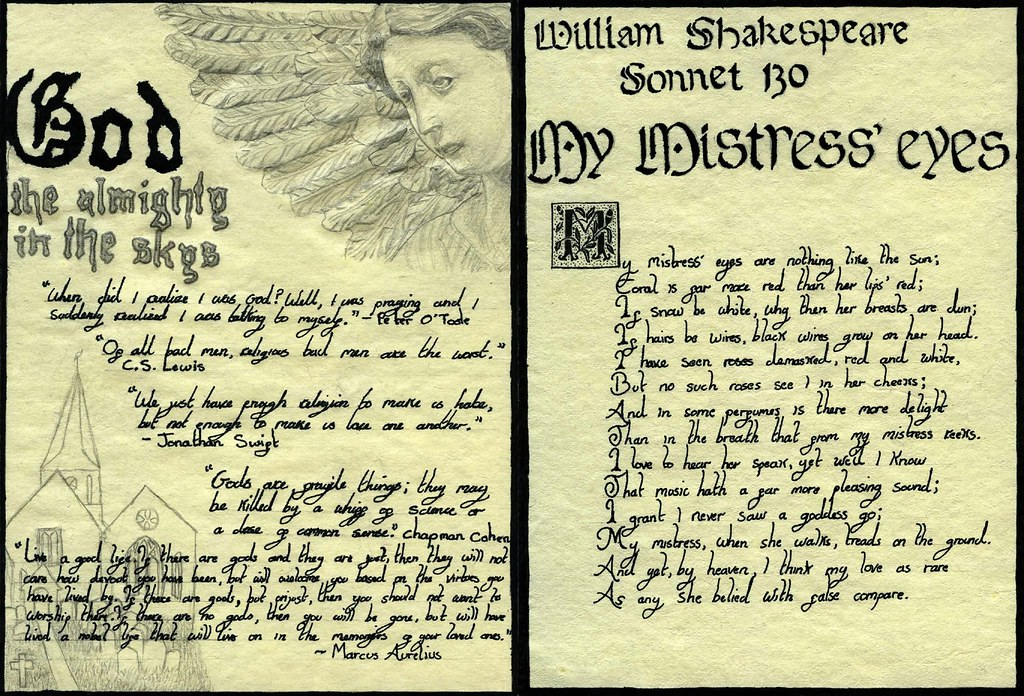 God
the almighty
in the skys
"When did I realize I was God? Well, I was praying and I
suddenly realized I was talking to myself." - Peter O'Toole
"Of all bad men, religious bad men are the worst."
C.S. Lewis
"We just have enough religion to make us hate,
but not enough to make us love one another."
- Jonathan Swift
"Gods are fragile things; they may
be killed by a whiff of science or
a dose of common sense." Chapman Cohen
"Live a good life. If there are gods and they are just, then they will not
care how devout you have been, but will welcome you based on the virtues you
have lived by. If there are gods, but unjust, then you should not want to
worship them. If there are no gods, then you will be gone, but will have
lived a nobel life that will live on in the memories of your loved ones."
~ Marcus Aurelius
William Shakespeare
Sonnet 130
My Mistress' eyes
My mistress' eyes are nothing like the sun;
Coral is far more red than her lips' red;
If snow be white, why then her breasts are dun;
If hairs be wires, black wires grow on her head.
I have seen roses demasked, red and white,
But no such roses see I in her cheeks;
And in some perfumes is there more delight
Than in the breath that from my mistress reeks.
I love to hear her speak, yet well I know
That music hath a far more pleasing sound;
I grant I never saw a goddess go;
My mistress, when she walks, treads on the ground.
And yet, by heaven, I think my love as rare
As any she belied with false compare.